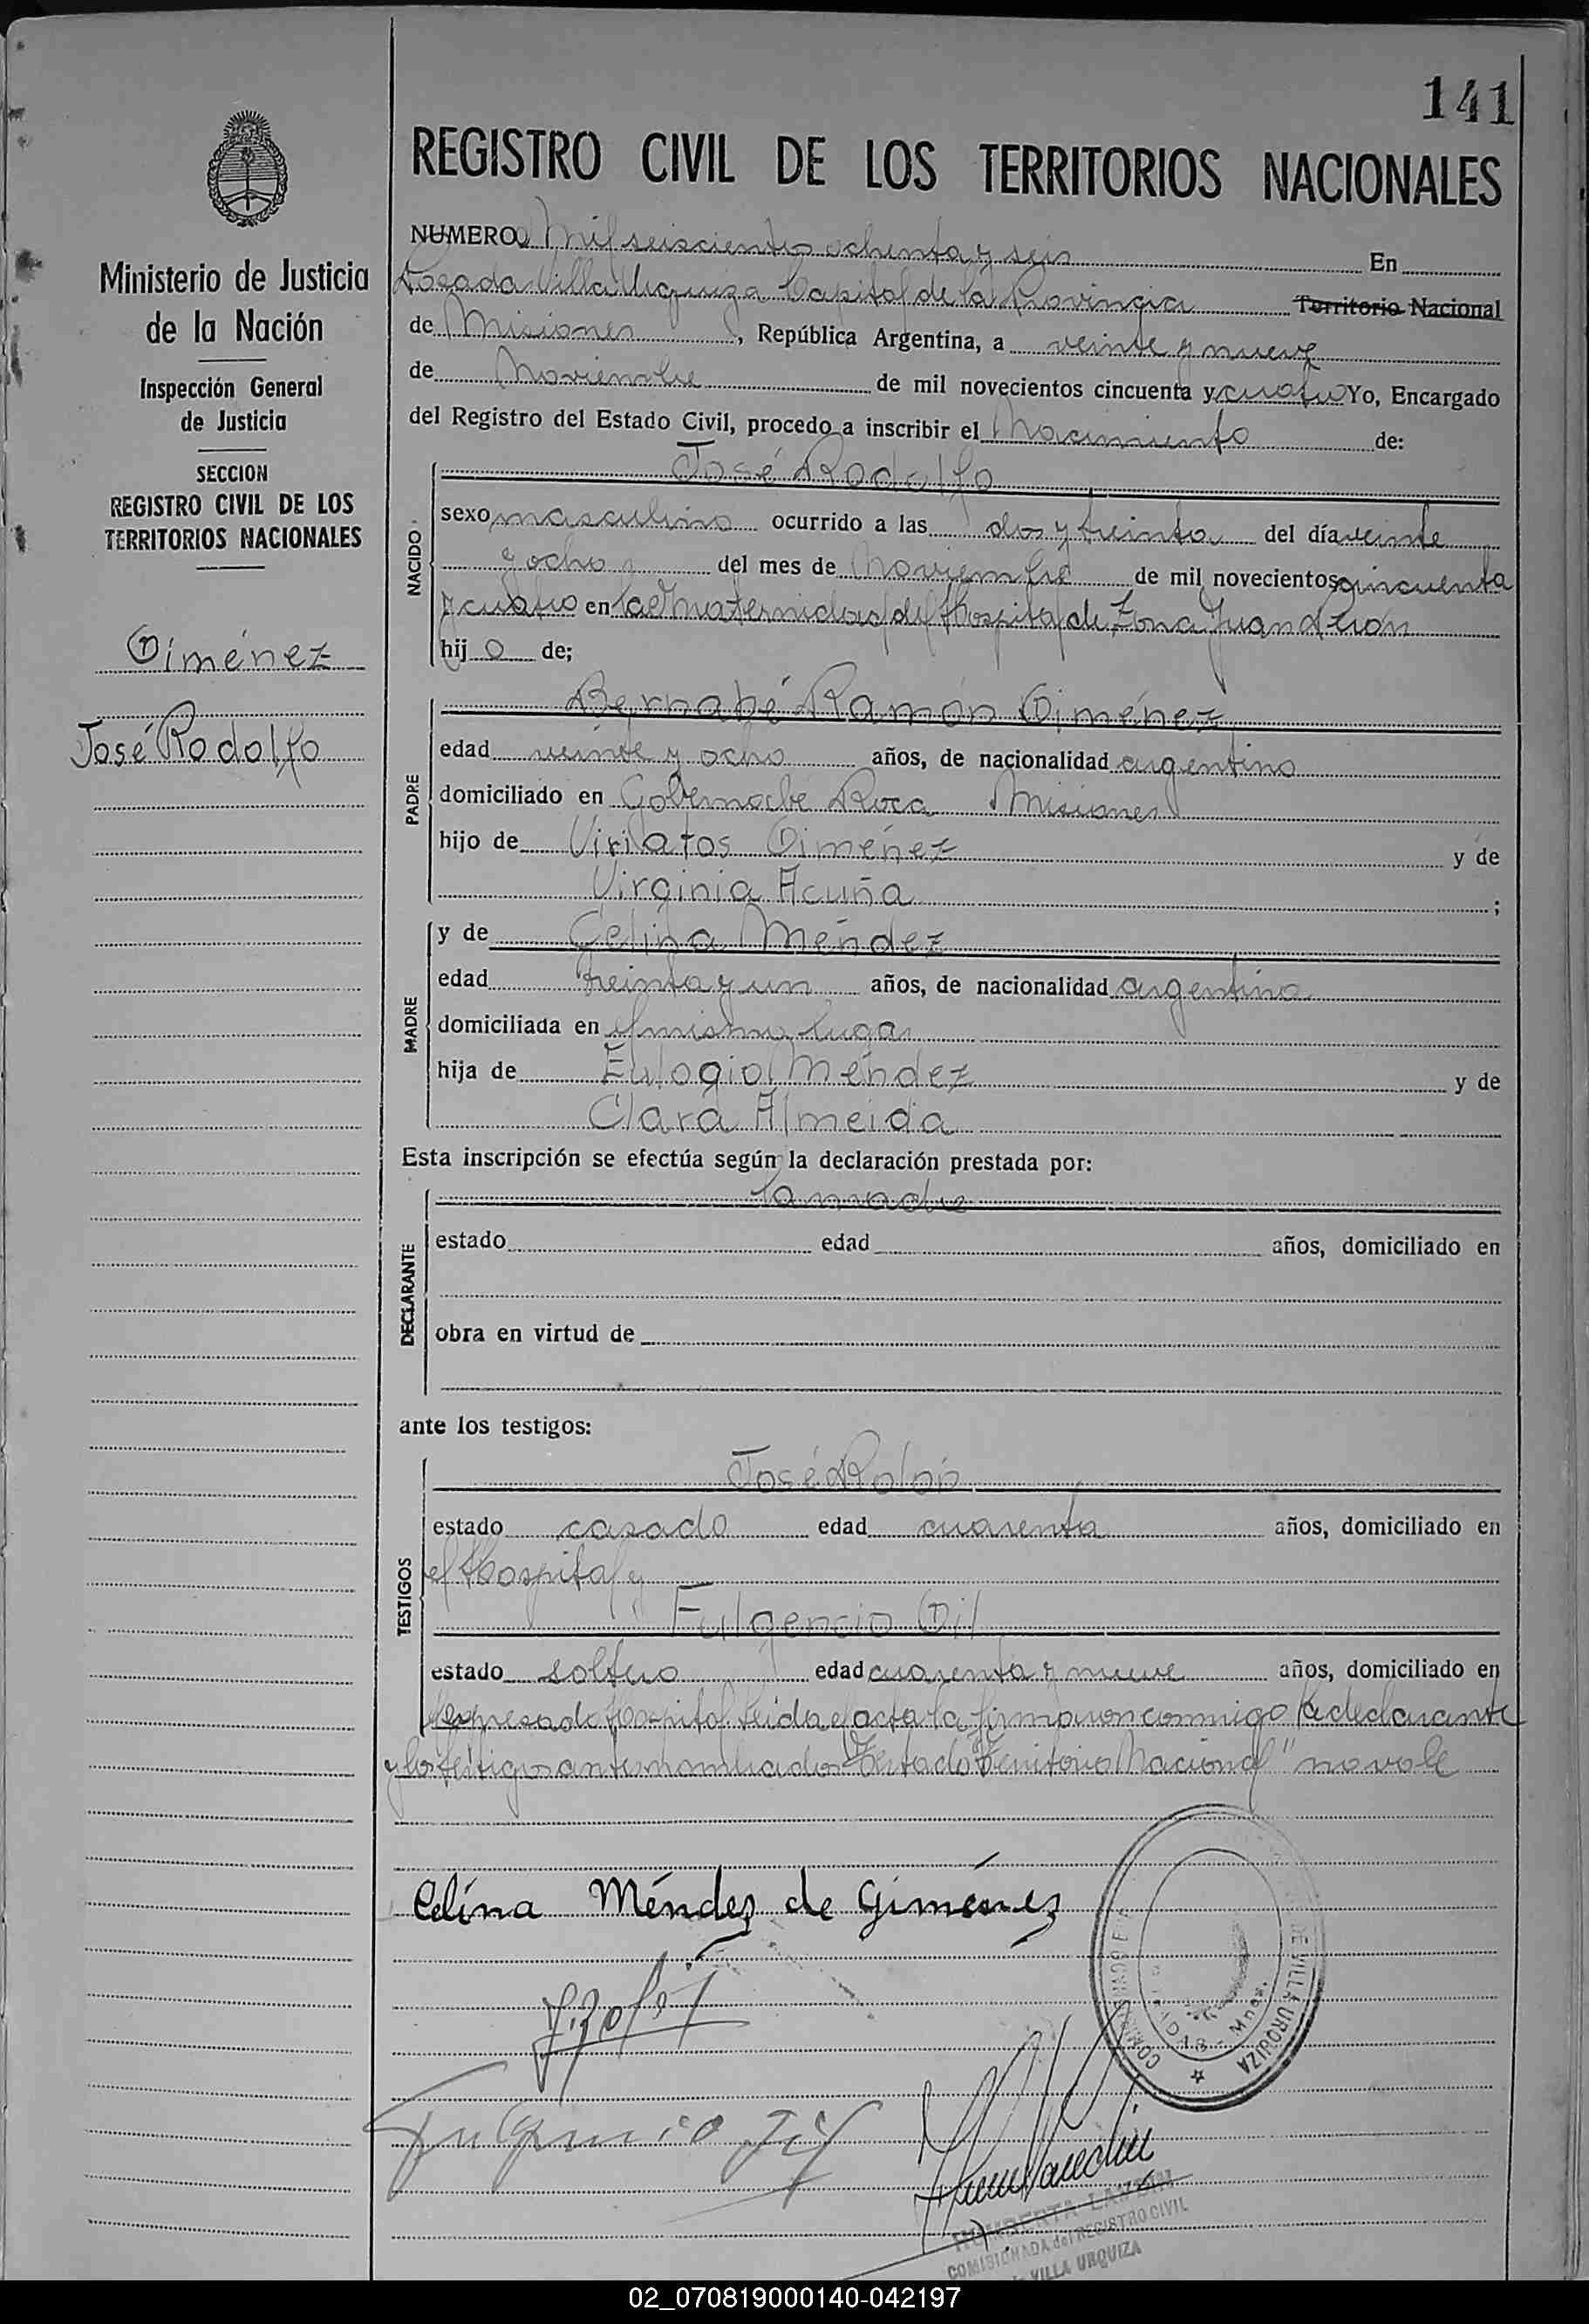 141
REGISTRO CIVIL DE LOS TERRITORIOS NACIONALES
Ministerio de Justicia
de la Nación
Inspección General
de Justicia
SECCION
REGISTRO CIVIL DE LOS
TERRITORIOS NACIONALES
Giménez
José Rodolfo
NUMERO Mil seiscientos ochenta y seis En
Posadas Villa Urquiza Capital de la Provincia Territorio Nacional
de Misiones, República Argentina, a veinte y nueve
de Noviembre de mil novecientos cincuenta y cuatro Yo, Encargado
del Registro del Estado Civil, procedo a inscribir el Nacimiento de:
NACIDO
José Rodolfo
sexo masculino ocurrido a las dos y treinta del día veinte
y ocho del mes de Noviembre de mil novecientos cincuenta
y cuatro en la Maternidad del Hospital de Zona Juan Perón
hijo de;
PADRE
Bernabé Ramón Giménez
edad veinte y ocho años, de nacionalidad argentino
domiciliado en Roca Misiones
hijo de Viriatos Giménez y de
Virginia Acuña;
MADRE
y de Celina Méndez
edad treinta y un años, de nacionalidad argentina
domiciliada en el mismo lugar
hija de Eulogio Méndez y de
Clara Almeida
Esta inscripción se efectúa según la declaración prestada por:
DECLARANTE
la madre
estado edad años, domiciliado en
obra en virtud de
ante los testigos:
TESTIGOS
José Rolón
estado casado edad cuarenta años, domiciliado en
el Hospital y
Fulgencio Gil
estado soltero edad cuarenta y nueve años, domiciliado en
el expresado Hospital Leida el acta la firmaron conmigo la declarante
y los testigos antes nombrados Testado "Territorio Nacional" no vale
Celina Méndez de Giménez
Fulgencio Gil
DE VILLA URQUIZA
LANZIN
COMISIONADA del REGISTRO CIVIL
VILLA URQUIZA
02_070819000140-042197